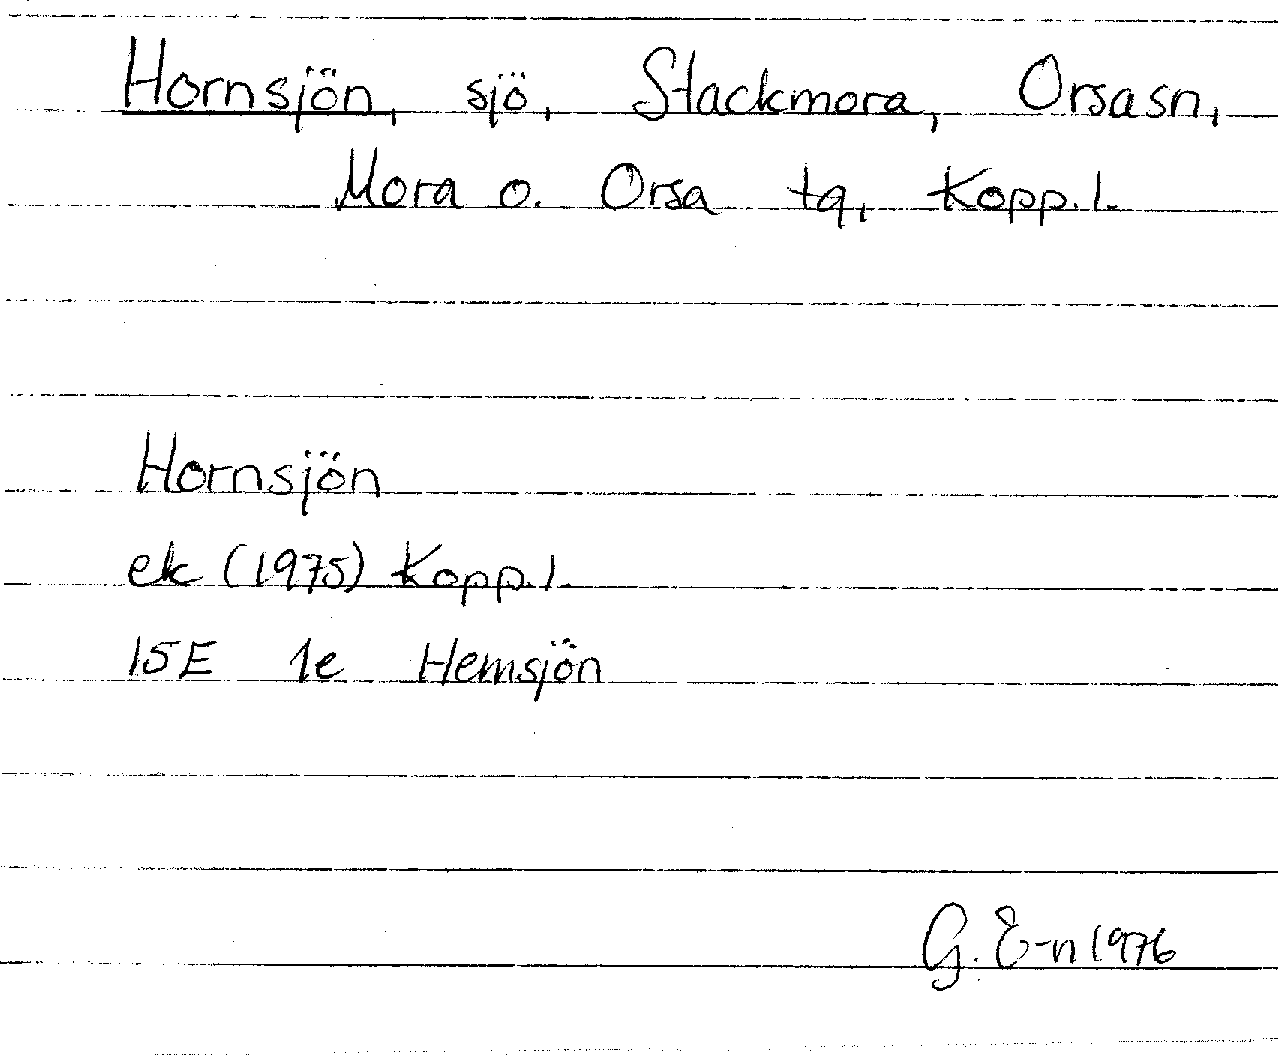 Hornsjön, sjö, Stackmora, Orsa sn,
Mora o. Orsa tg, Kopp. l.
Hornsjön
ek (1975) Kopp. l.
15E 1e Hemsjön
G. E-n 1976